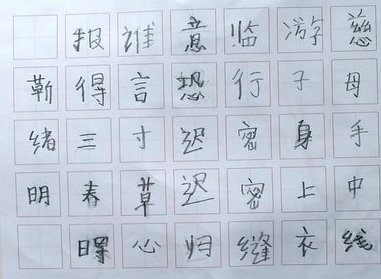 慈母手中线
游子身上衣
监行密密缝
意恐迟迟归
谁言寸草心
报得三春晖
靳绪明